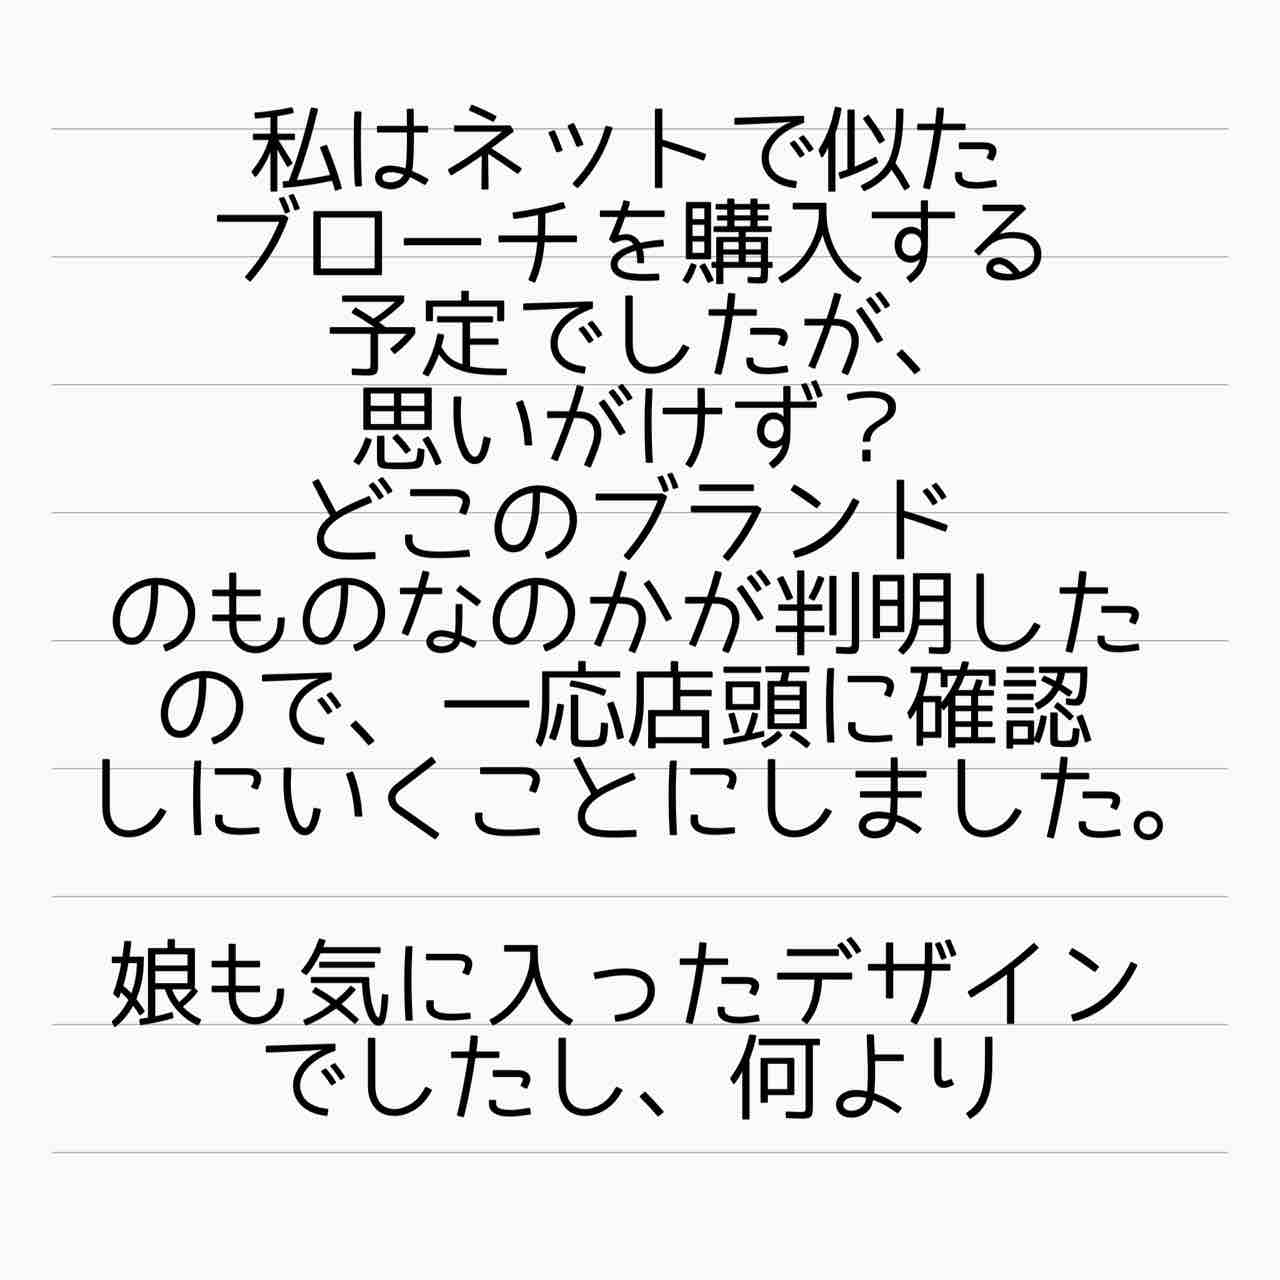 私はネットで似た
ブローチを購入する
予定でしたが、
思いがけず？
どこのブランド
のものなのかが判明した
ので、一応店頭に確認
しにいくことにしました。
娘も気に入ったデザイン
でしたし、何より